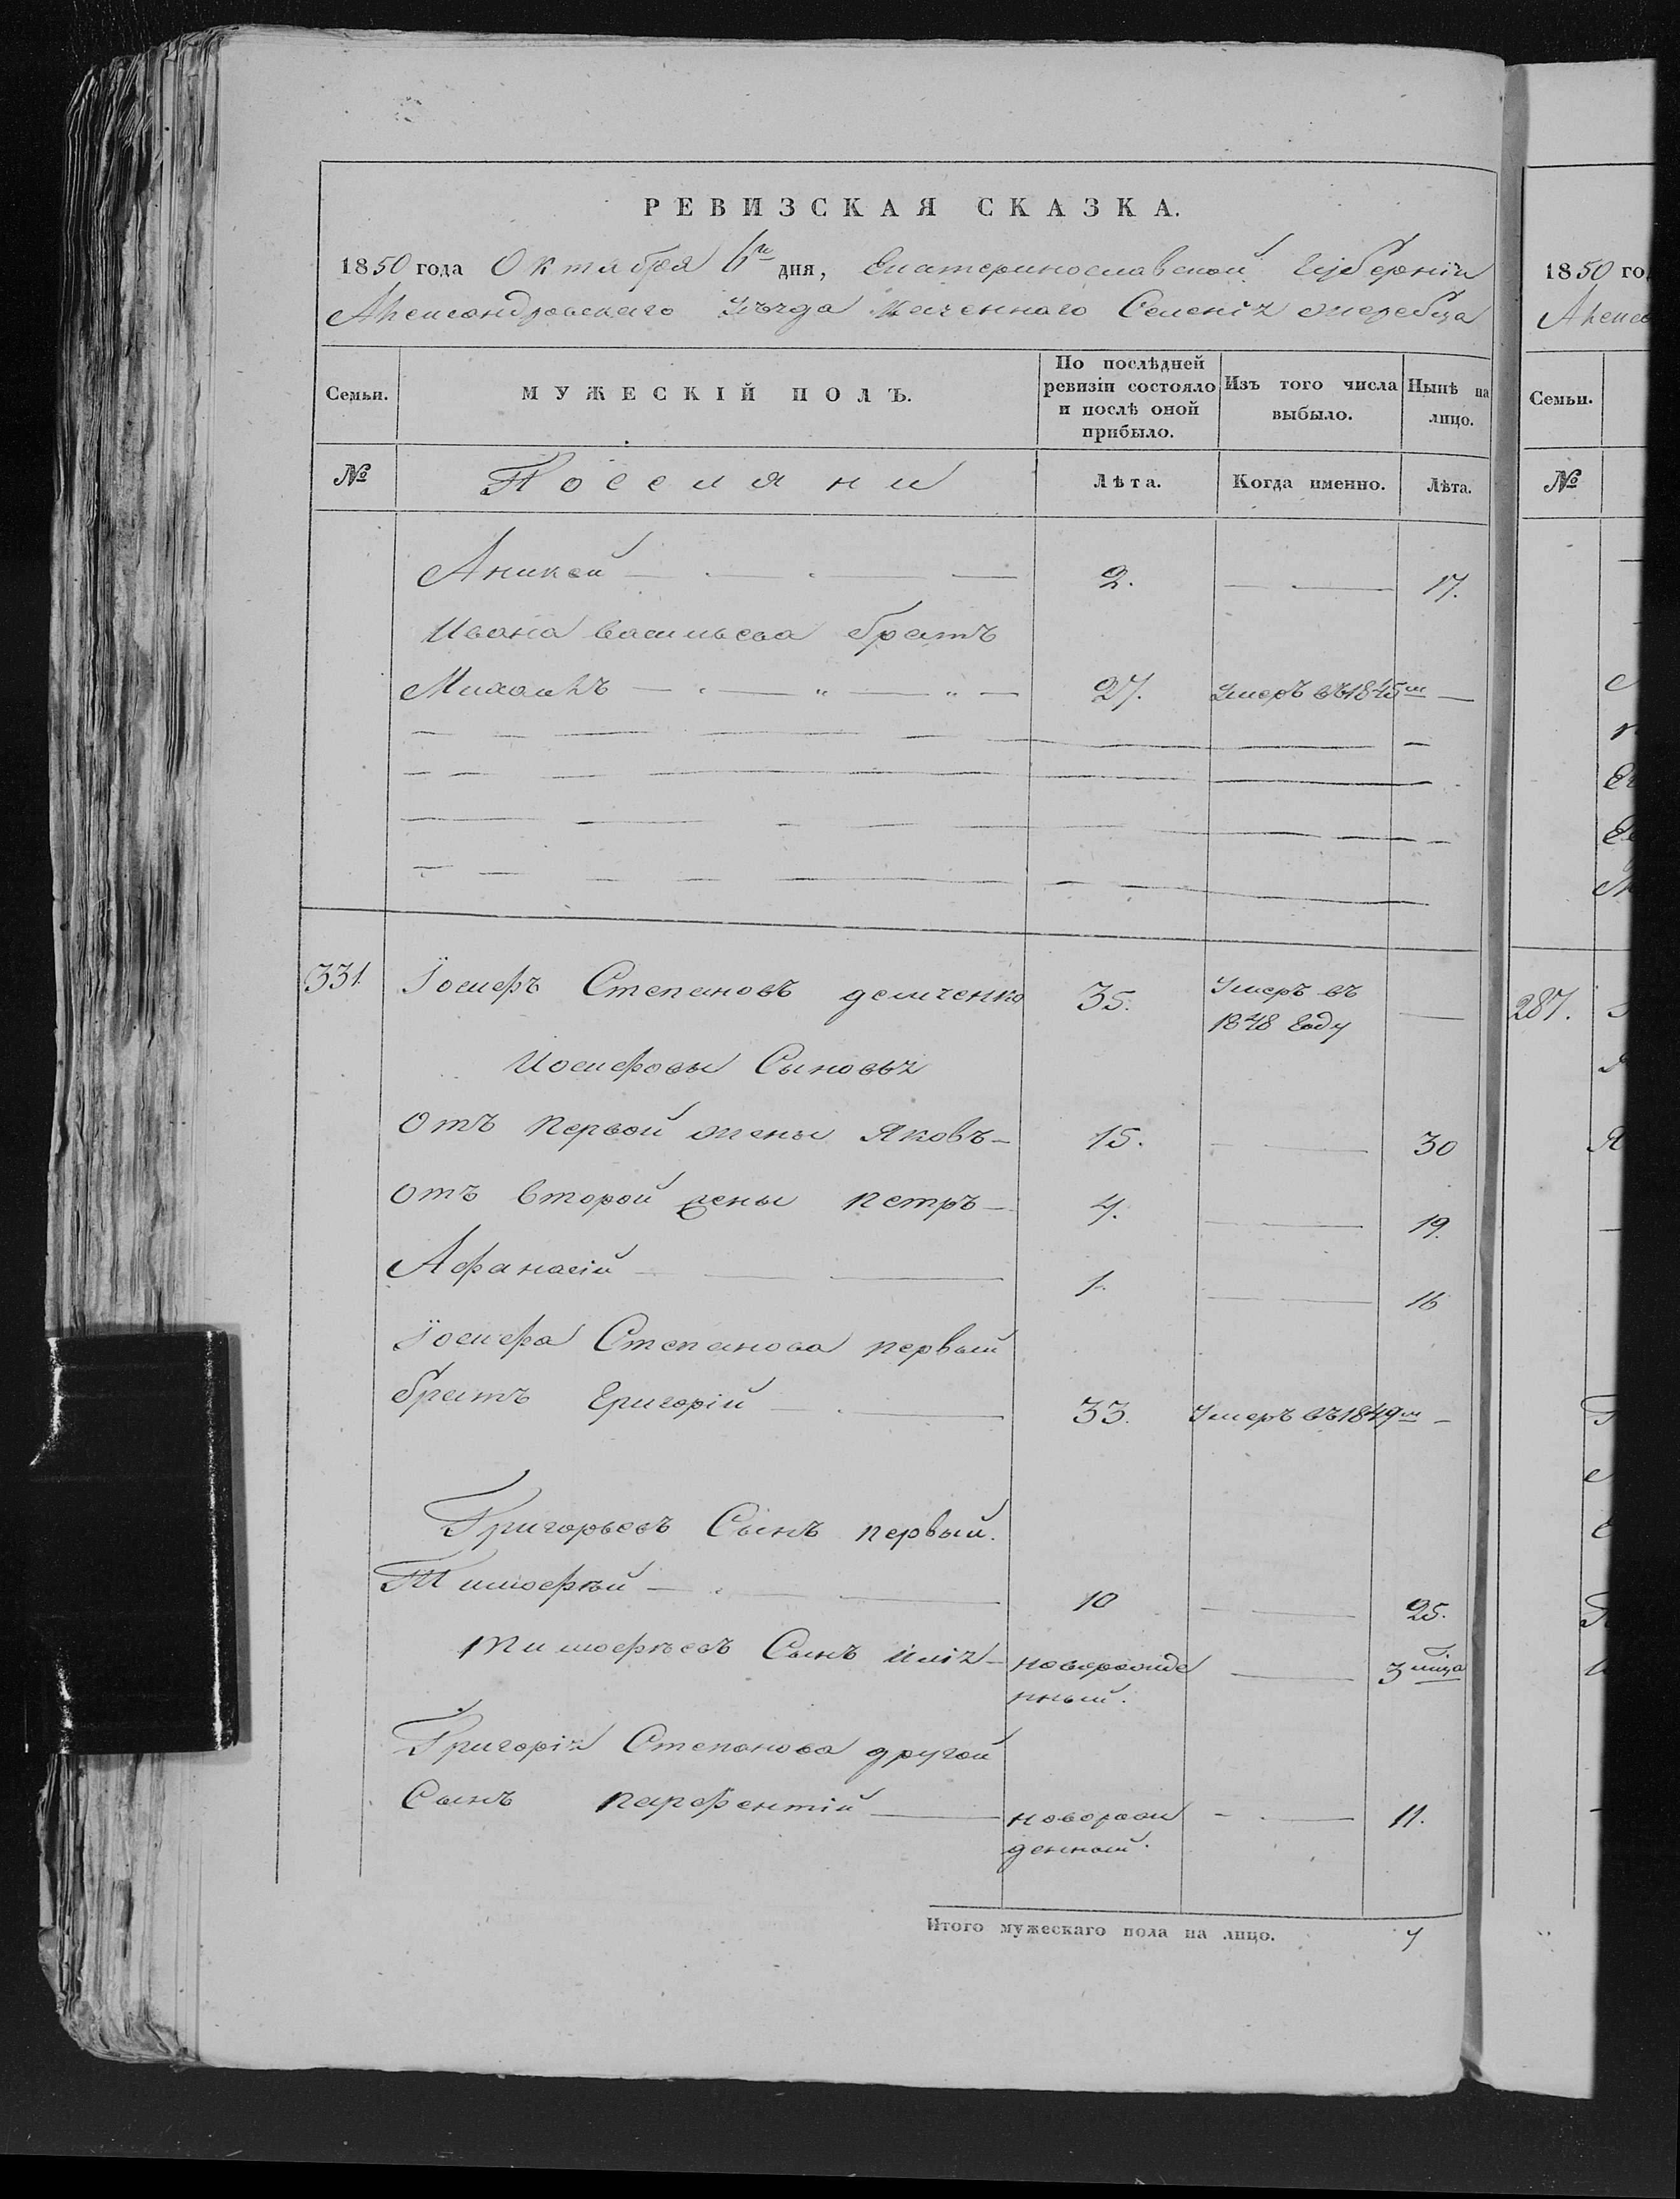 РЕВИЗСКАЯ СКАЗКА.
1850 года Октября 6го дня, Екатеринославской Губерніи
Александровскаго Уѣзда Казеннаго Селенія Жеребца
Семьи.
МУЖЕСКІЙ ПОЛЪ.
По послѣдней ревизіи состояло и послѣ оной прибыло.
Изъ того числа выбыло.
Нынѣ на лицо.
№
Поселяни
Лѣта.
Когда именно.
Лѣта.
Аникей 2. 17.
Ивана Васильева братъ
Михаилъ 27. Умеръ въ 1845м
331. Іосифъ Степановъ Демченко 35. Умеръ въ
1848 Году
Иосифовы Сыновья
Отъ первой жены Яковъ 15. 30
Отъ второй жены Петръ 4. 19.
Афанасій 1. 16
Іосифа Степанова первый
братъ Григорій 33. Умеръ въ 1849м
Григорьевъ Сынъ первый.
Тимофѣй 10 25.
Тимофѣевъ Сынъ Илія новорожде 3 мца
нный.
Григорія Степанова другой
Сынъ Парфентій новорож 11.
денный.
Итого мужескаго пола на лицо. 7
1850 го
Семьи.
№
287.